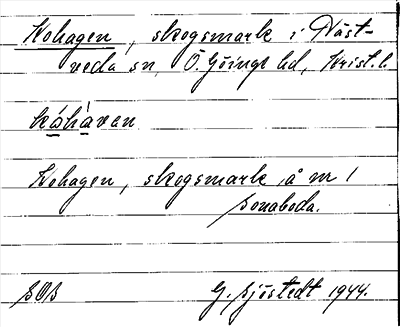 Kohagen, skogsmark i Näst-
veda sn, Ö. Göinge hd, Krist. l.
kåhàvan
Kohagen, skogsmark, å m 1
Sonaboda.
SOS
G. Sjöstedt 1944.